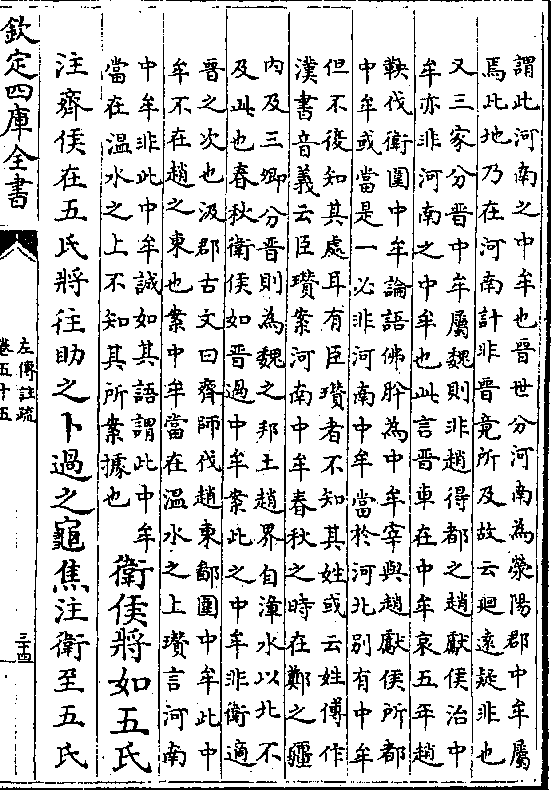 謂此河南之中牟也晉世分河南為滎陽郡中牟屬
焉此地乃在河南計非晉竟所及故云廻遠疑非也
又三家分晉中牟屬魏則非趙得都之趙獻侯治中
牟亦非河南之中牟也此言晉車在中牟哀五年趙
鞅伐衛圍中牟論語佛肸為中牟宰與趙獻侯所都
中牟或當是一必非河南中牟當於河北別有中牟
但不復知其處耳有臣瓚者不知其姓或云姓傅作
漢書音義云臣瓚案河南中牟春秋之時在鄭之疆
內及三卿分晉則為魏之邦土趙界自漳水以北不
及此也春秋衛侯如晉過中牟案此之中牟非衛適
晉之次也汲郡古文曰齊師伐趙東鄙圍中牟此中
牟不在趙之東也案中牟當在溫水之上瓚言河南
中牟非此中牟誠如其語謂此中牟
當在溫水之上不知其所案據也
衛侯將如五氏
注齊侯在五氏將往助之卜過之龜焦注衛至五氏
欽定四庫全書
左傳註疏
卷五十五
三十四